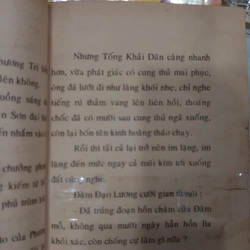 hương Tri
lên không.
uồng sáng
n Sơn đại
chưởng
g kiếm từ
phủ trùm
to của Phan
Nhưng Tống Khải Dân càng nhanh
hơn, vừa phát giác có cung thủ mai phục,
ông đã lướt đi như làng khói nhẹ, chỉ nghe
tiếng rú thảm vang lên liên hồi, thoáng
chốc đã có mười sau cung thủ ngã xuống,
còn lại bốn tên kinh hoàng tháo chạy.
Rồi thì tất cả lại trở nên im lặng, im
lặng đến mức ngay cả mũi kim rơi xuống
đất cũng nghe.
Đàm Đạo Lương cười gian tà nói :
- Đã trúng đoạn hồn châm của Đàm
mỗ, không qua mười ngày hồn lìa
khỏi xác, còn chống cự làm gì nữa ?